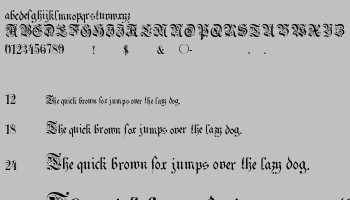 abcdefghijklmnopqrstuvwxyz
ABCDEFGHIJKLMNOPQRSTUVWXYZ
0123456789 ! $ & - . .
12 The quick brown fox jumps over the lazy dog.
18 The quick brown fox jumps over the lazy dog.
24 The quick brown fox jumps over the lazy dog.